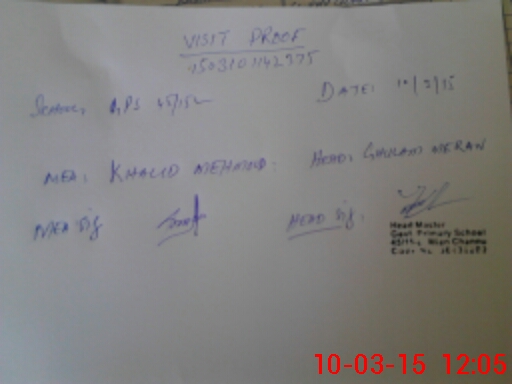 VISIT PROOF
150310142375
SCHOOL: GPS 45/15L DATE: 10/3/15
MEA: KHALID MEHMOOD. HEAD: GHULAM MERAN
MEA Sig HEAD Sig:
Head Master
Govt. Primary School
45/15-L Mian Channu
10-03-15 12:05